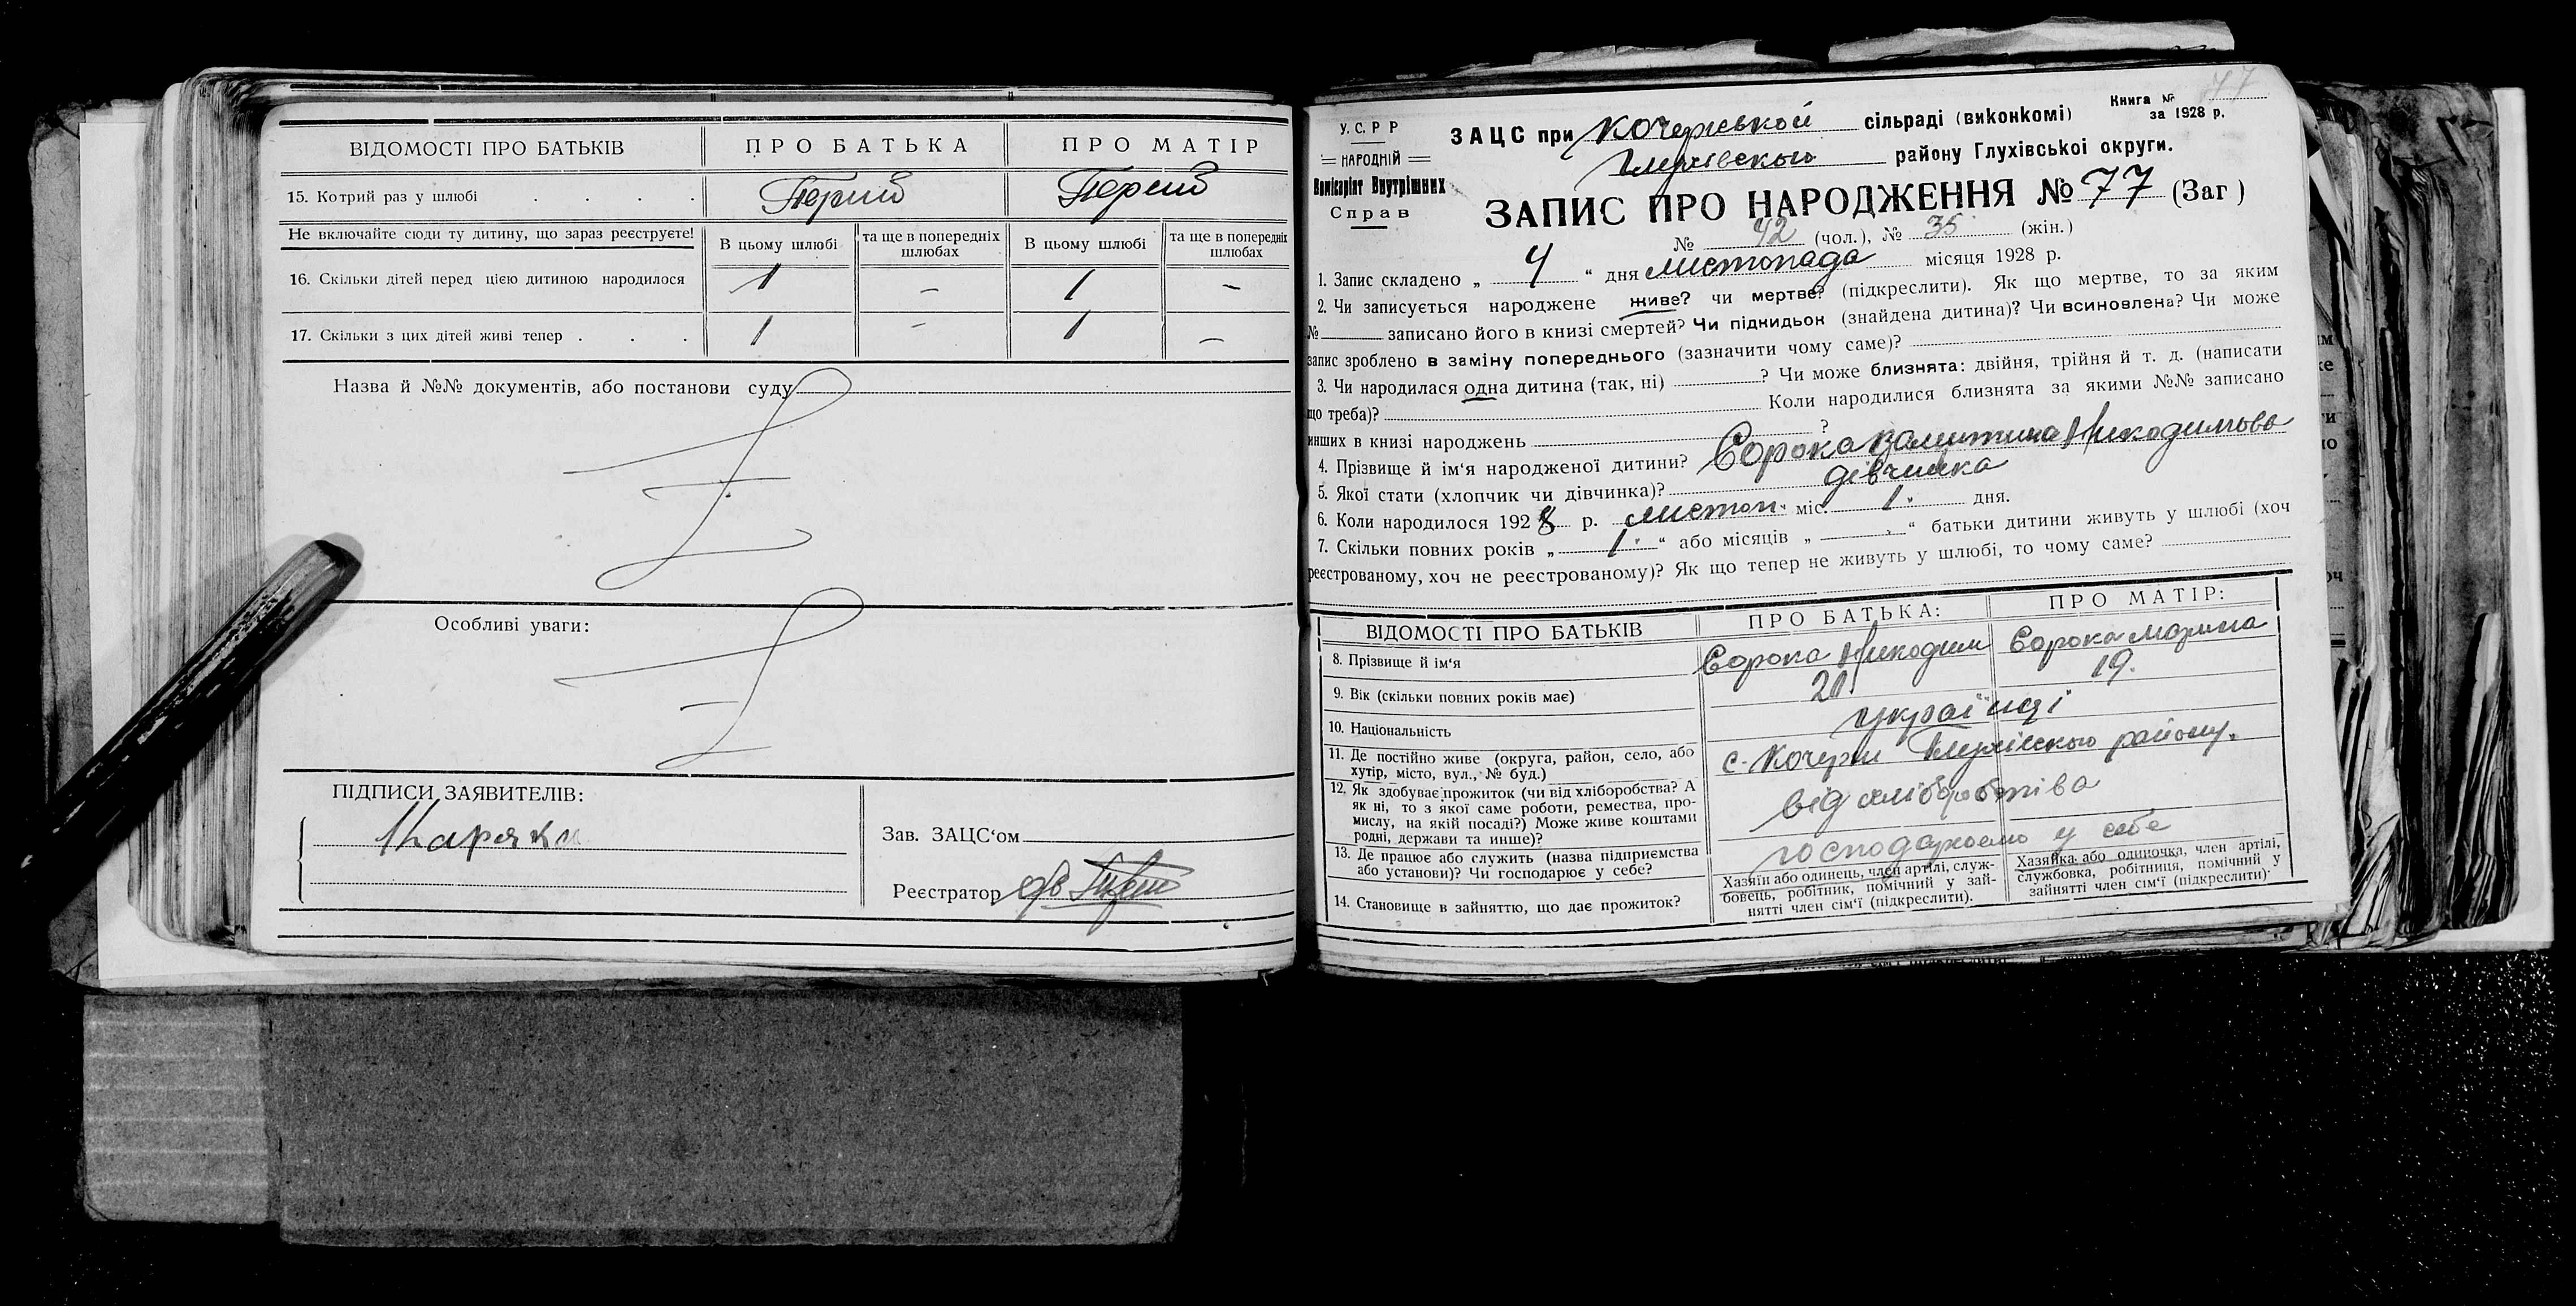 ВІДОМОСТІ ПРО БАТЬКІВ ПРО БАТЬКА ПРО МАТІР
15. Котрий раз у шлюбі . . . . Перший Перший
Не включайте сюди ту дитину, що зараз реєструєте! В цьому шлюбі та ще в попередніх шлюбах В цьому шлюбі та ще в попередніх шлюбах
16. Скільки дітей перед цією дитиною народилося 1 – 1 –
17. Скільки з цих дітей живі тепер . . . 1 – 1 –
Назва й №№ документів, або постанови суду
Особливі уваги:
ПІДПИСИ ЗАЯВИТЕЛІВ:
Зав. ЗАЦС‘ом
Реєстратор
У.С.Р Р
НАРОДНІЙ
Комісаріят Внутрішних
Справ
Книга №
за 1928 р.
ЗАЦС при Кочержській сільраді (виконкомі)
Глухівского району Глухівської округи.
ЗАПИС ПРО НАРОДЖЕННЯ № 77 (Заг)
№ 42 (чол.), № 35 (жін.)
1. Запис складено „ 4 “ дня листопада місяця 1928 р.
2. Чи записується народжене живе? чи мертве? (підкреслити). Як що мертве, то за яким
№ записано його в книзі смертей? Чи підкидьок (знайдена дитина)? Чи всиновлена? Чи може
запис зроблено в заміну попереднього (зазначити чому саме)?
3. Чи народилася одна дитина (так, ні) ? Чи може близнята: двійня, трійня й т. д. (написати
що треба)? Коли народилися близнята за якими №№ записано
инших в книзі народжень ?
4. Прізвище й ім‘я народженої дитини? Сорока Валитина Никодимова
5. Якої стати (хлопчик чи дівчинка)? дівчинка
6. Коли народилося 1928 р. листоп. міс. 1 дня.
7. Скільки повних років „ 1 “ або місяців „ — “ батьки дитини живуть у шлюбі (хоч
реєстрованому, хоч не реєстрованому)? Як що тепер не живуть у шлюбі, то чому саме?
ВІДОМОСТІ ПРО БАТЬКІВ ПРО БАТЬКА: ПРО МАТІР:
8. Прізвище й ім‘я Сорока Никодим Сорока Марина
9. Вік (скільки повних років має) 19.
10. Національність українці
11. Де постійно живе (округа, район, село, або
хутір, місто, вул., № буд.) с. Кочерги Глухівского району.
12. Як здобуває прожиток (чи від хліборобства? А
як ні, то з якої саме роботи, ремества, про-
мислу, на якій посаді?) Може живе коштами
родні, держави та инше)? від хліборобтіва
13. Де працює або служить (назва підприємства
або установи)? Чи господарює у себе? господарюємо у себе
14. Становище в зайняттю, що дає прожиток?
Хазяїн або одинець, член артілі, служ-
бовець, робітник, помічний у зай-
нятті член сім‘ї (підкреслити).
Хазяйка або одиночка, член артілі,
службовка, робітниця, помічний у
зайнятті член сім‘ї (підкреслити).